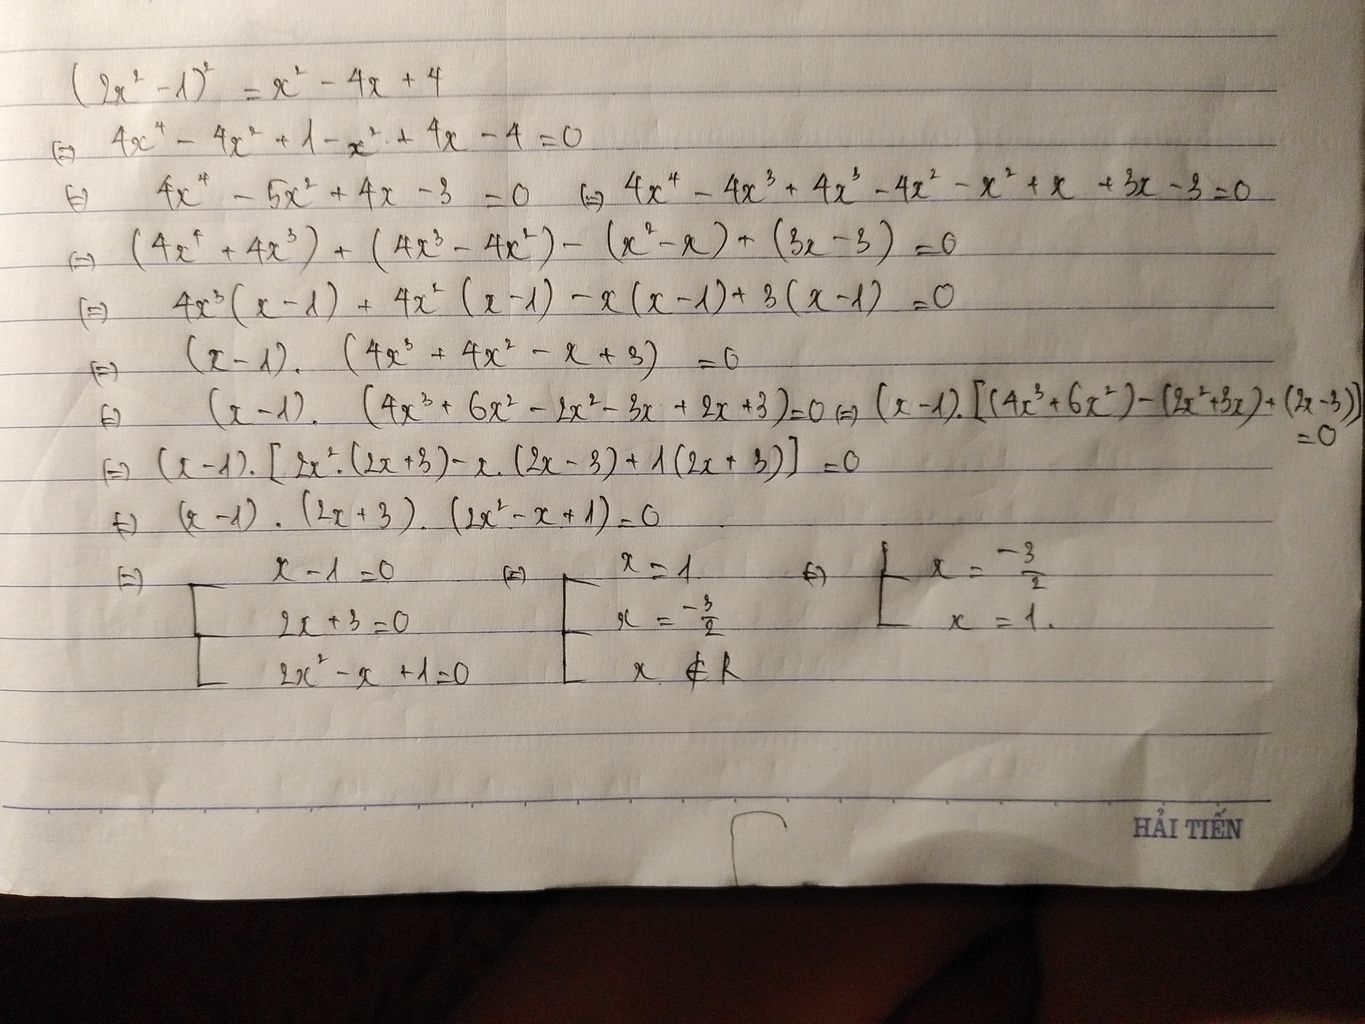 (2x² - 1)² = x² - 4x + 4
(=) 4x⁴ - 4x² + 1 - x² + 4x - 4 = 0
(=) 4x⁴ - 5x² + 4x - 3 = 0 (=) 4x⁴ - 4x³ + 4x³ - 4x² - x² + x + 3x - 3 = 0
(=) (4x⁴ + 4x³) + (4x³ - 4x²) - (x² - x) + (3x - 3) = 0
(=) 4x³(x - 1) + 4x² (x - 1) - x (x - 1) + 3 (x - 1) = 0
(=) (x - 1). (4x³ + 4x² - x + 3) = 0
(=) (x - 1). (4x³ + 6x² - 2x² - 3x + 2x + 3) = 0 (=) (x - 1). [(4x³ + 6x²) - (2x² + 3x) + (2x - 3)]
= 0
(=) (x - 1). [2x².(2x + 3) - x.(2x - 3) + 1(2x + 3)] = 0
(=) (x - 1) . (2x + 3). (2x² - x + 1) = 0
(=) [ x - 1 = 0 (=) [ x = 1 (=) [ x = -3/2
2x + 3 = 0 x = -3/2 x = 1.
2x² - x + 1 = 0 x ∉ R
HẢI TIẾN